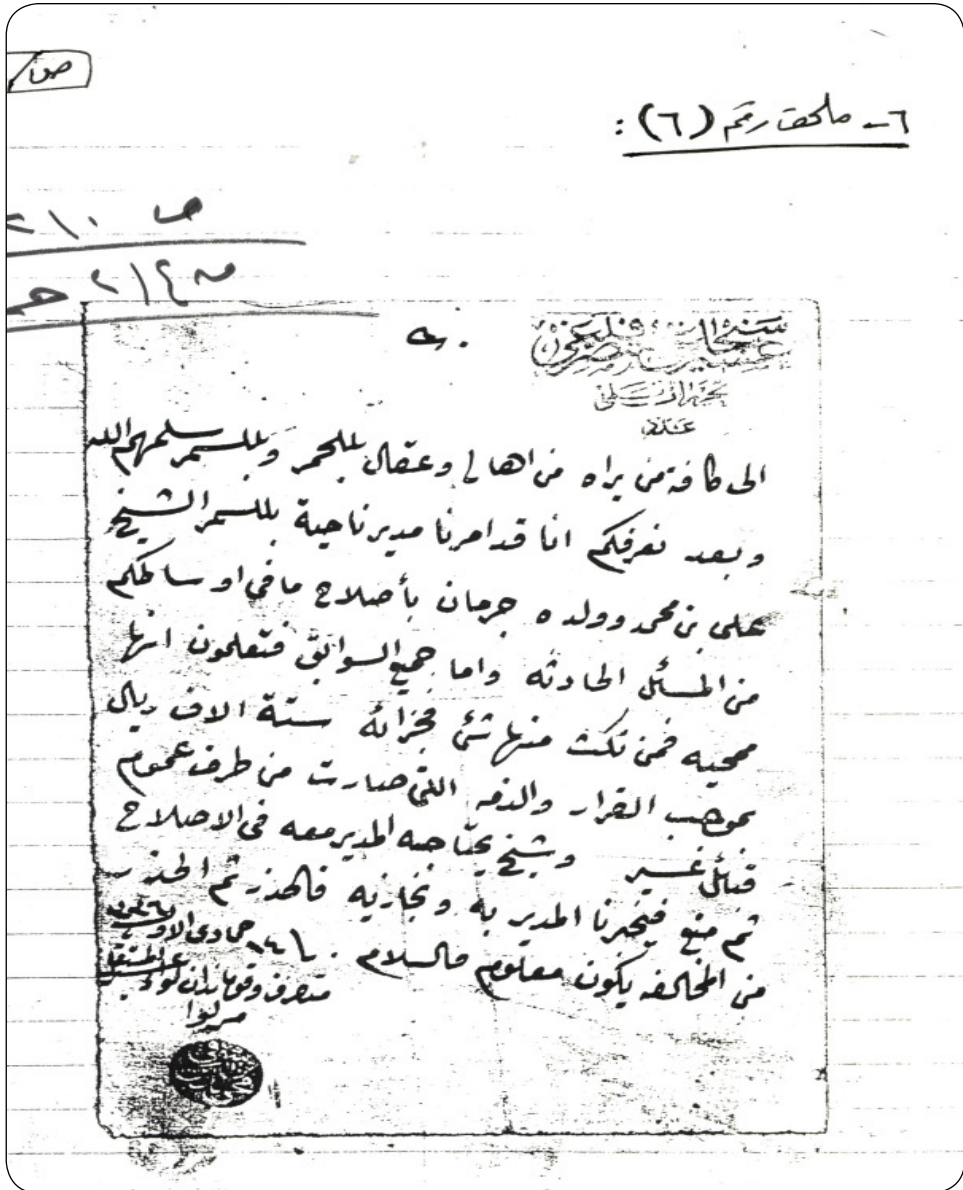 ص/
٦ـ ملحق رقم (٦):
ص ٢١٠
٢١٤ هـ
عدد
الى كافة من يراه من اهالي وعقال بللحمر وبللسمر سلمهم الله
وبعد نعرفكم انا قد امرنا مدير ناحية بللسمر الشيخ
علي بن محمد وولده جرمان بأصلاح ما في اوساطكم
من المسئل الحادثه واما جميع السوابق فتعلمون انها
محيه فمن نكث منها شئ فجزائه ستة الاف ريال
بموجب القرار والذمه اللتي صارت من طرف عموم
قبائل عسير وشيخ يحتاجه المدير معه في الاصلاح
ثم منع فيخبرنا المدير به ونجازيه فالحذر ثم الحذر
من المخالفه يكون معلوم والسلام جمادى الاول
متصرف وقومندان
ميرلوا